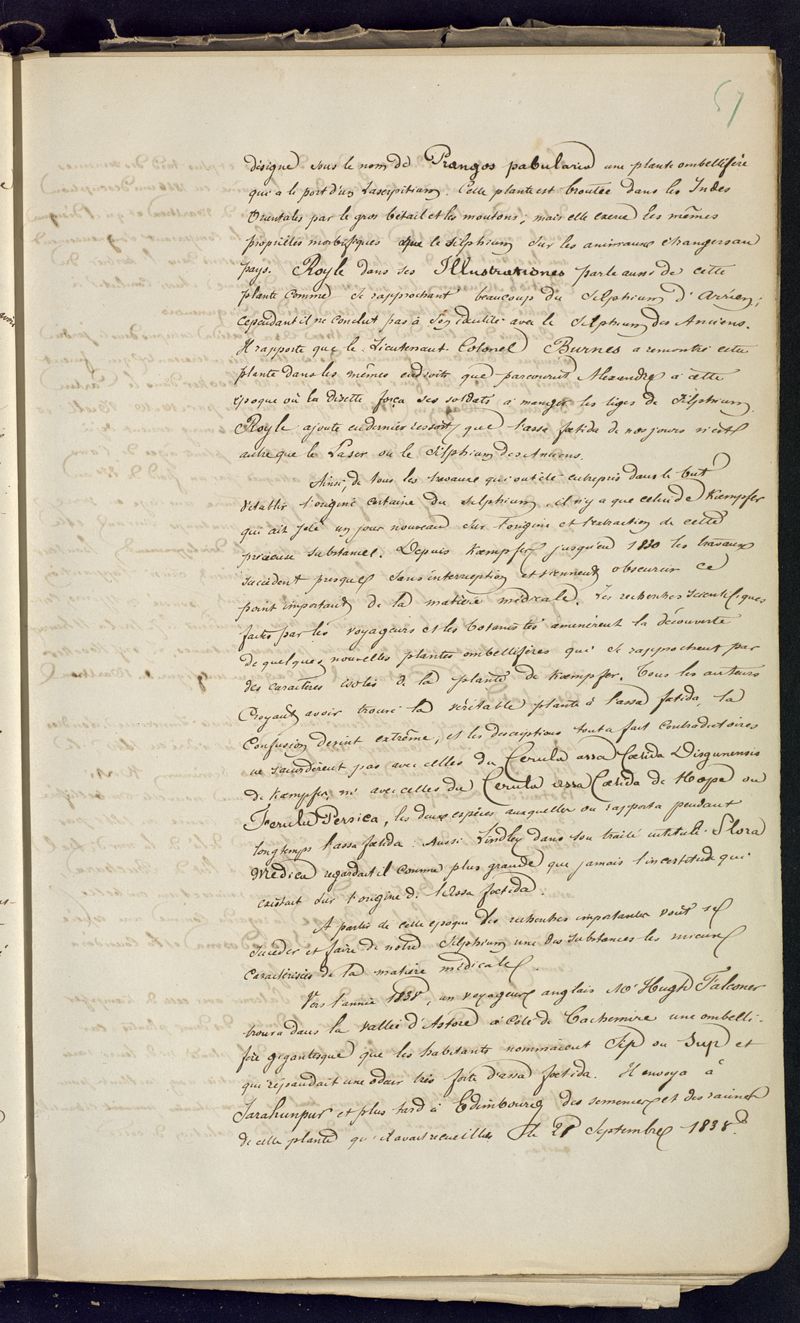 57
désigne sous le nom de Prangos pabularia une plante ombellifère
qui a le port d'un Laserpitium. Cette plante est broutée dans les Indes
Orientales par le gros bétail et les moutons; mais elle exerce les mêmes
propriétés morbifiques que le Silphium sur les animaux étrangers au
pays. Royle dans ses Illustrationes parle aussi de cette
plante comme se rapprochant beaucoup du Silphium d'Arrien;
cependant il ne conclut pas à son identité avec le Silphium des Anciens.
Il rapporte que le Lieutenant Colonel Burnes a rencontré cette
plante dans les mêmes endroits que parcourut Alexandre à cette
époque où la disette força ses soldats à manger les tiges de Silphium.
Royle ajoute en dernier ressort, que l'assa foetida de nos jours n'est
autre que le Laser ou le Silphium des Anciens.
Ainsi, de tous les travaux qui ont été entrepris dans le but
d'établir l'origine certaine du Silphium, il n'y a que celui de Kaempfer
qui ait jeté un jour nouveau sur l'origine et l'extraction de cette
précieuse substance. Depuis Kaempfer jusqu'en 1830 les travaux
succèdent presque sans interruption et viennent obscurcir ce
point important de la matière médicale. Les recherches scientifiques
faites par les voyageurs et les botanistes amenèrent la découverte
de quelques nouvelles plantes ombellifères qui se rapprochent par
des caractères isolés de la plante de Kaempfer. Tous les auteurs
croyant avoir trouvé la véritable plante à l'assa fœtida, la
confusion devint extrême, et les descriptions tout à fait contradictoires
ne s'accordèrent pas avec celles du Ferula assa foetida Disgunensis
de Kaempfer, ni avec celles du Ferula assa foetida de Hope ou
Ferula Persica, les deux espèces auxquelles on rapporta pendant
longtemps l'assa fœtida. Aussi Lindley dans son traité intitulé Flora
Medica regardait-il comme plus grande que jamais l'incertitude qui
existait sur l'origine de l'Assa foetida.
A partir de cette époque des recherches importantes vont se
succéder et faire de notre Silphium une des substances les mieux
caractérisées de la matière médicale.
Vers l'année 1838, un voyageur anglais Mr Hugh Falconer
trouva dans la vallée d'Astore à côté de Cachemire une ombelli-
fère gigantesque que les habitants nommaient Sip ou Sup et
qui répandait une odeur très forte d'assa foetida. Il envoya à
Sarahunpur et plus tard à Edimbourg des semences et des racines
de cette plante qu'il avait recueillies le 21 Septembre 1838.